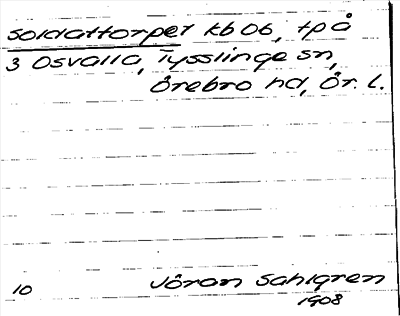 soldattorpet kb Ob, tp å
3 Osvalla, Tysslinge sn,
Örebro hd, Ör. l.
10 Jöran Sahlgren
1908